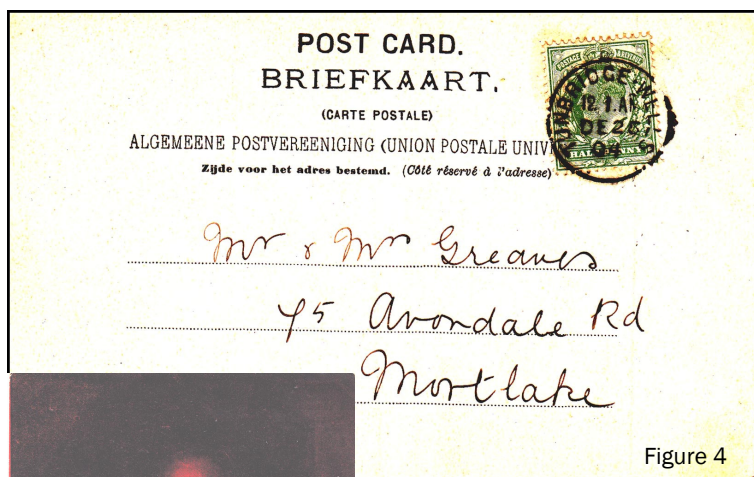 POST CARD.
BRIEFKAART.
(CARTE POSTALE)
ALGEMEENE POSTVEREENIGING (UNION POSTALE
Zijde voor het adres bestemd. (Côté réservé à l'adresse)
POSTAGE REVENUE
TUNBRIDGE WELLS
12.1.AM
DE 25
04
Mr & Mrs Greaves
45 Avondale Rd
Mortlake
Figure 4